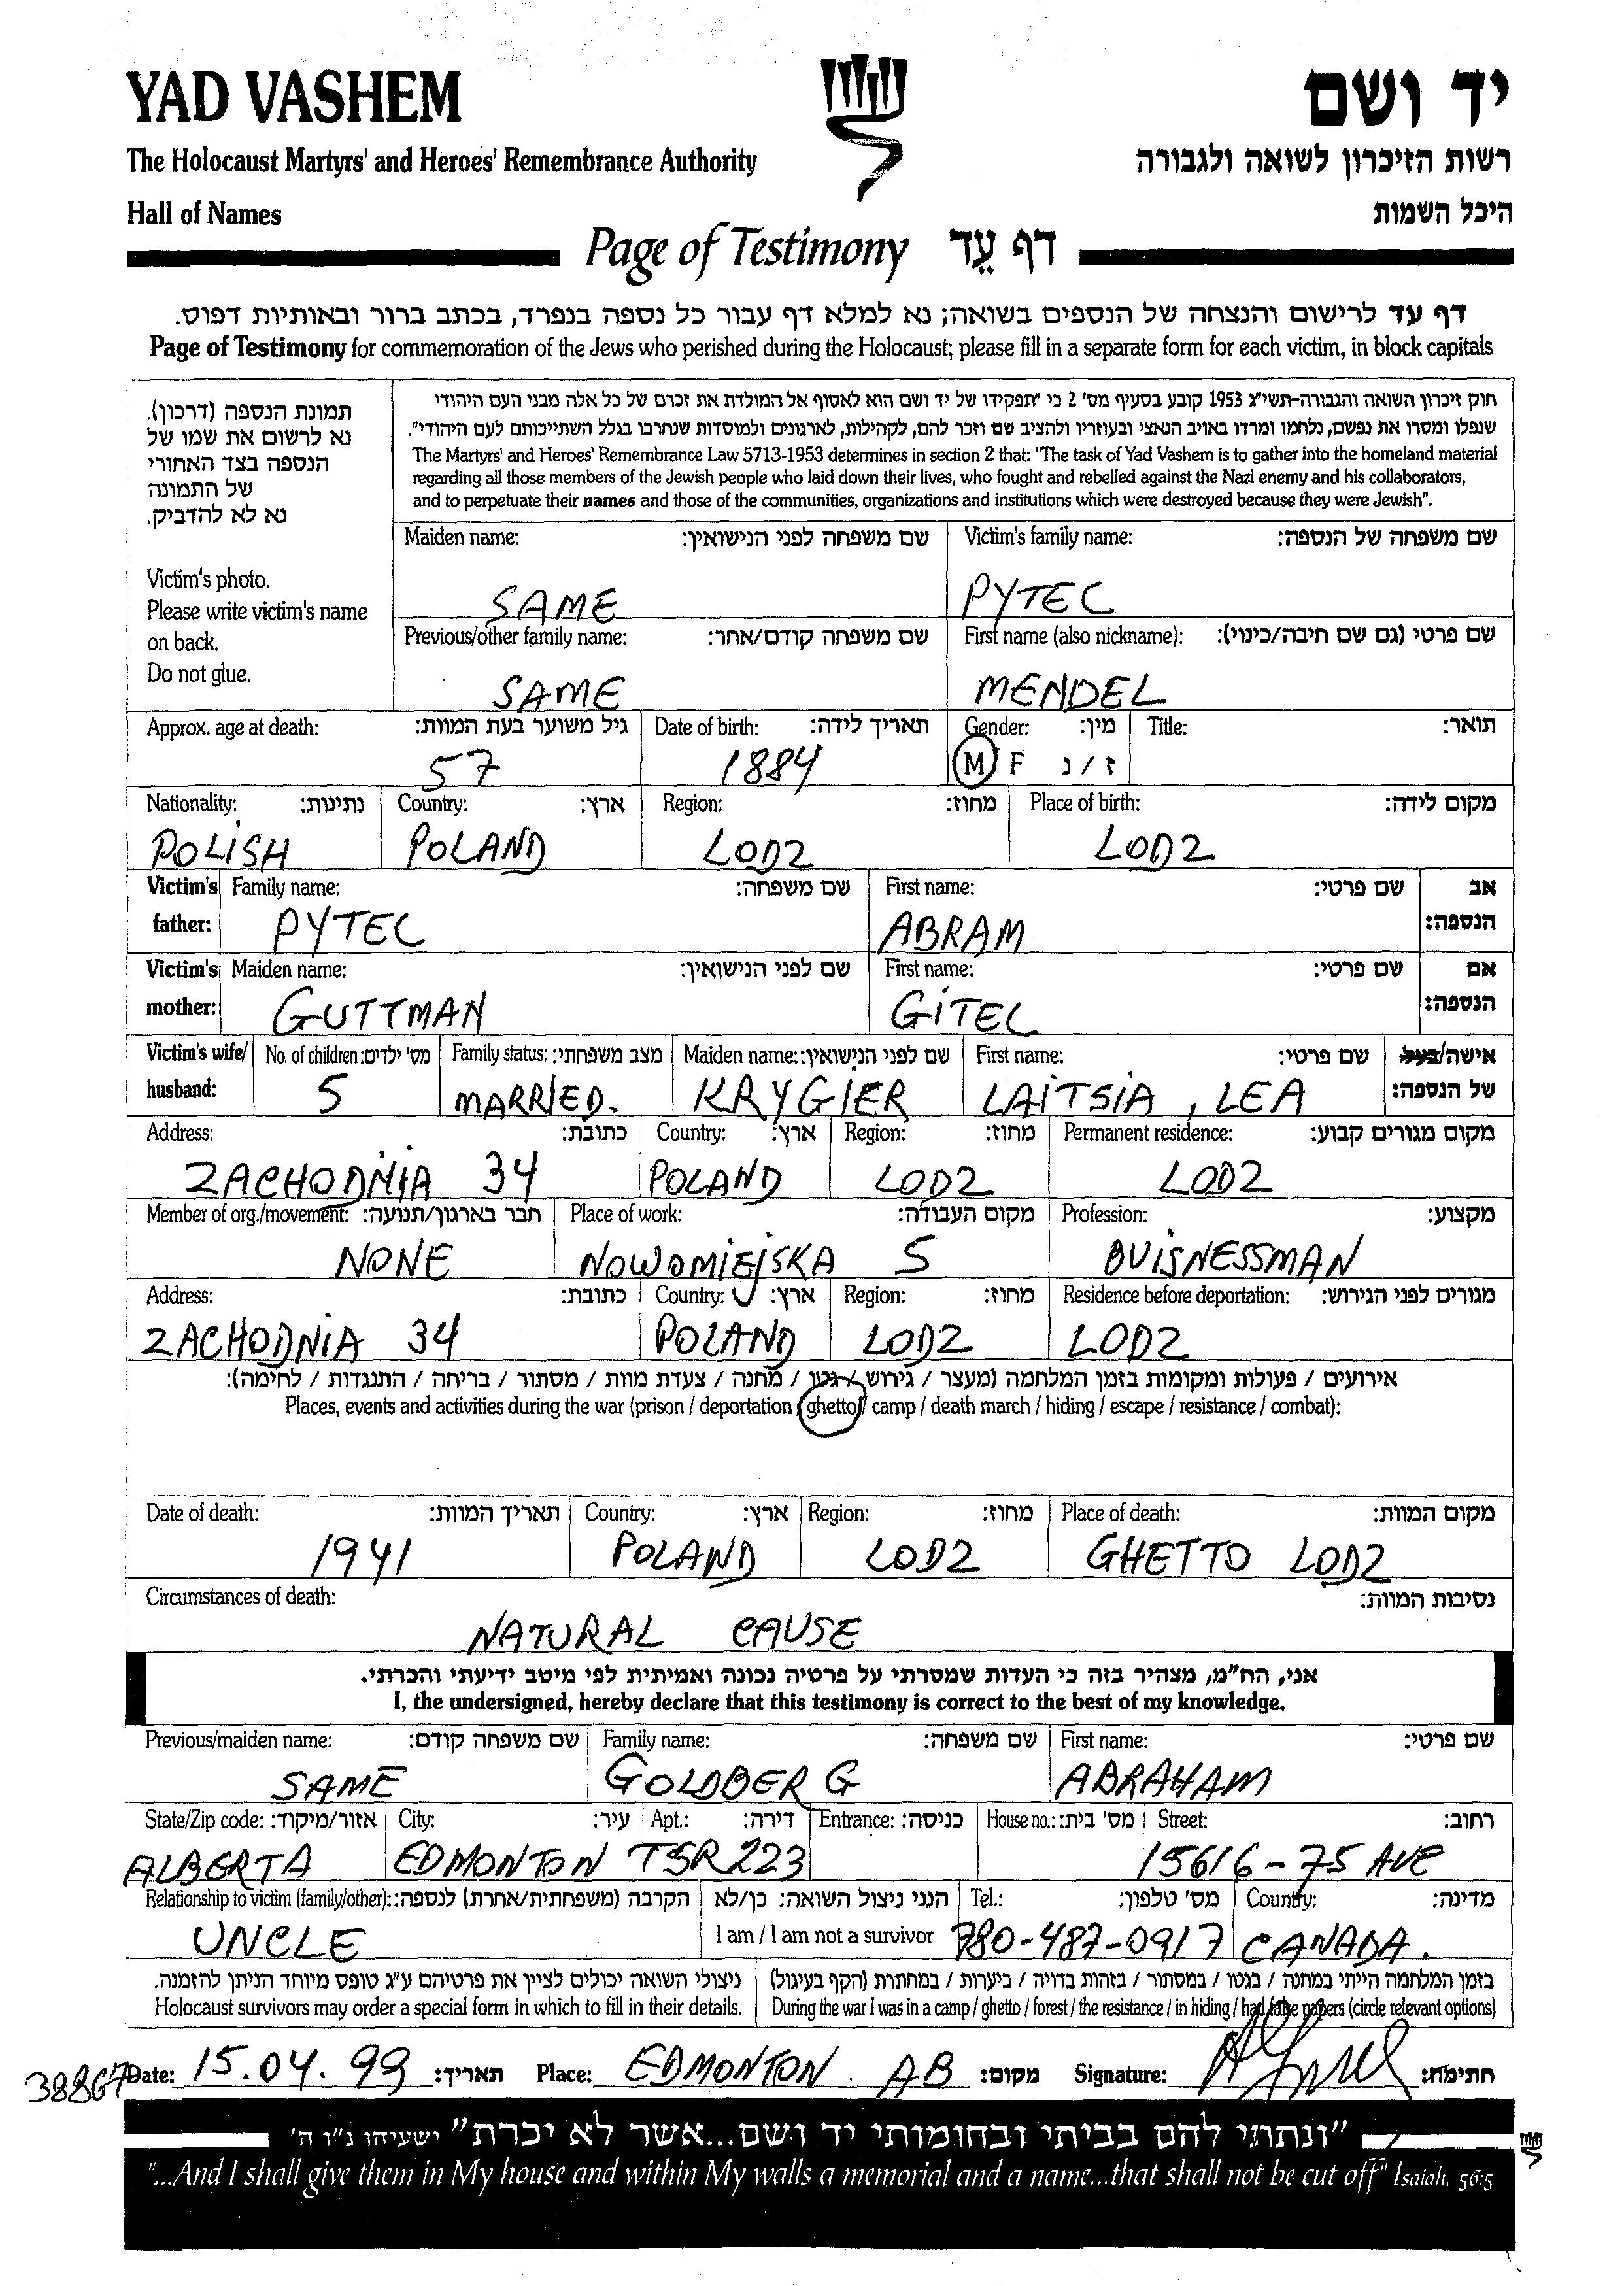 YAD VASHEM
יד ושם
The Holocaust Martyrs' and Heroes' Remembrance Authority
רשות הזיכרון לשואה ולגבורה
Hall of Names
היכל השמות
Page of Testimony דף עֵד
דף עד לרישום והנצחה של הנספים בשואה; נא למלא דף עבור כל נספה בנפרד, בכתב ברור ובאותיות דפוס.
Page of Testimony for commemoration of the Jews who perished during the Holocaust; please fill in a separate form for each victim, in block capitals
תמונת הנספה (דרכון).
נא לרשום את שמו של
הנספה בצד האחורי
של התמונה
נא לא להדביק.
Victim's photo.
Please write victim's name
on back.
Do not glue.
חוק זיכרון השואה והגבורה-תשי"ג 1953 קובע בסעיף מס' 2 כי "תפקידו של יד ושם הוא לאסוף אל המולדת את זכרם של כל אלה מבני העם היהודי
שנפלו ומסרו את נפשם, נלחמו ומרדו באויב הנאצי ובעוזריו ולהציב שם וזכר להם, לקהילות, לארגונים ולמוסדות שנחרבו בגלל השתייכותם לעם היהודי".
The Martyrs' and Heroes' Remembrance Law 5713-1953 determines in section 2 that: "The task of Yad Vashem is to gather into the homeland material
regarding all those members of the Jewish people who laid down their lives, who fought and rebelled against the Nazi enemy and his collaborators,
and to perpetuate their names and those of the communities, organizations and institutions which were destroyed because they were Jewish".
Maiden name: שם משפחה לפני הנישואין: Victim's family name: שם משפחה של הנספה:
SAME PYTEL
Previous/other family name: שם משפחה קודם/אחר: First name (also nickname): שם פרטי (גם שם חיבה/כינוי):
SAME MENDEL
Approx. age at death: גיל משוער בעת המוות: Date of birth: תאריך לידה: Gender: מין: Title: תואר:
57 1884 M F ז / נ
Nationality: נתינות: Country: ארץ: Region: מחוז: Place of birth: מקום לידה:
POLISH POLAND LODZ LODZ
Victim's father: Family name: שם משפחה: First name: שם פרטי: אב הנספה:
PYTEL ABRAM
Victim's mother: Maiden name: שם לפני הנישואין: First name: שם פרטי: אם הנספה:
GUTTMAN GITEL
Victim's wife/ husband: No. of children: מס' ילדים: Family status: מצב משפחתי: Maiden name: שם לפני הנישואין: First name: שם פרטי: אישה/בעל של הנספה:
5 MARRIED. KRYGIER LAITSIA, LEA
Address: כתובת: Country: ארץ: Region: מחוז: Permanent residence: מקום מגורים קבוע:
ZACHODNIA 34 POLAND LODZ LODZ
Member of org./movement: חבר בארגון/תנועה: Place of work: מקום העבודה: Profession: מקצוע:
NONE NOWOMIEJSKA 5 BUISNESSMAN
Address: כתובת: Country: ארץ: Region: מחוז: Residence before deportation: מגורים לפני הגירוש:
ZACHODNIA 34 POLAND LODZ LODZ
אירועים / פעולות ומקומות בזמן המלחמה (מעצר / גירוש / גטו / מחנה / צעדת מוות / מסתור / בריחה / התנגדות / לחימה):
Places, events and activities during the war (prison / deportation / ghetto / camp / death march / hiding / escape / resistance / combat):
Date of death: תאריך המוות: Country: ארץ: Region: מחוז: Place of death: מקום המוות:
1941 POLAND LODZ GHETTO LODZ
Circumstances of death: נסיבות המוות:
NATURAL CAUSE
אני, הח"מ, מצהיר בזה כי העדות שמסרתי על פרטיה נכונה ואמיתית לפי מיטב ידיעתי והכרתי.
I, the undersigned, hereby declare that this testimony is correct to the best of my knowledge.
Previous/maiden name: שם משפחה קודם: Family name: שם משפחה: First name: שם פרטי:
SAME GOLDBERG ABRAHAM
State/Zip code: אזור/מיקוד: City: עיר: Apt.: דירה: Entrance: כניסה: House no.: מס' בית: Street: רחוב:
ALBERTA EDMONTON T5R223 15616-75 AVE
Relationship to victim (family/other): הקרבה (משפחתית/אחרת) לנספה: הנני ניצול השואה: כן/לא Tel.: מס' טלפון: Country: מדינה:
UNCLE I am / I am not a survivor 780-487-0917 CANADA.
ניצולי השואה יכולים לציין את פרטיהם ע"ג טופס מיוחד הניתן להזמנה. בזמן המלחמה הייתי במחנה / בגטו / במסתור / בזהות בדויה / ביערות / במחתרת (הקף בעיגול)
Holocaust survivors may order a special form in which to fill in their details. During the war I was in a camp / ghetto / forest / the resistance / in hiding / had false papers (circle relevant options)
38867 Date: 15.04.99 תאריך: Place: EDMONTON AB מקום: Signature: חתימה:
"ונתתי להם בביתי ובחומותי יד ושם...אשר לא יכרת" ישעיהו נ"ו ה'
"...And I shall give them in My house and within My walls a memorial and a name...that shall not be cut off" Isaiah, 56:5